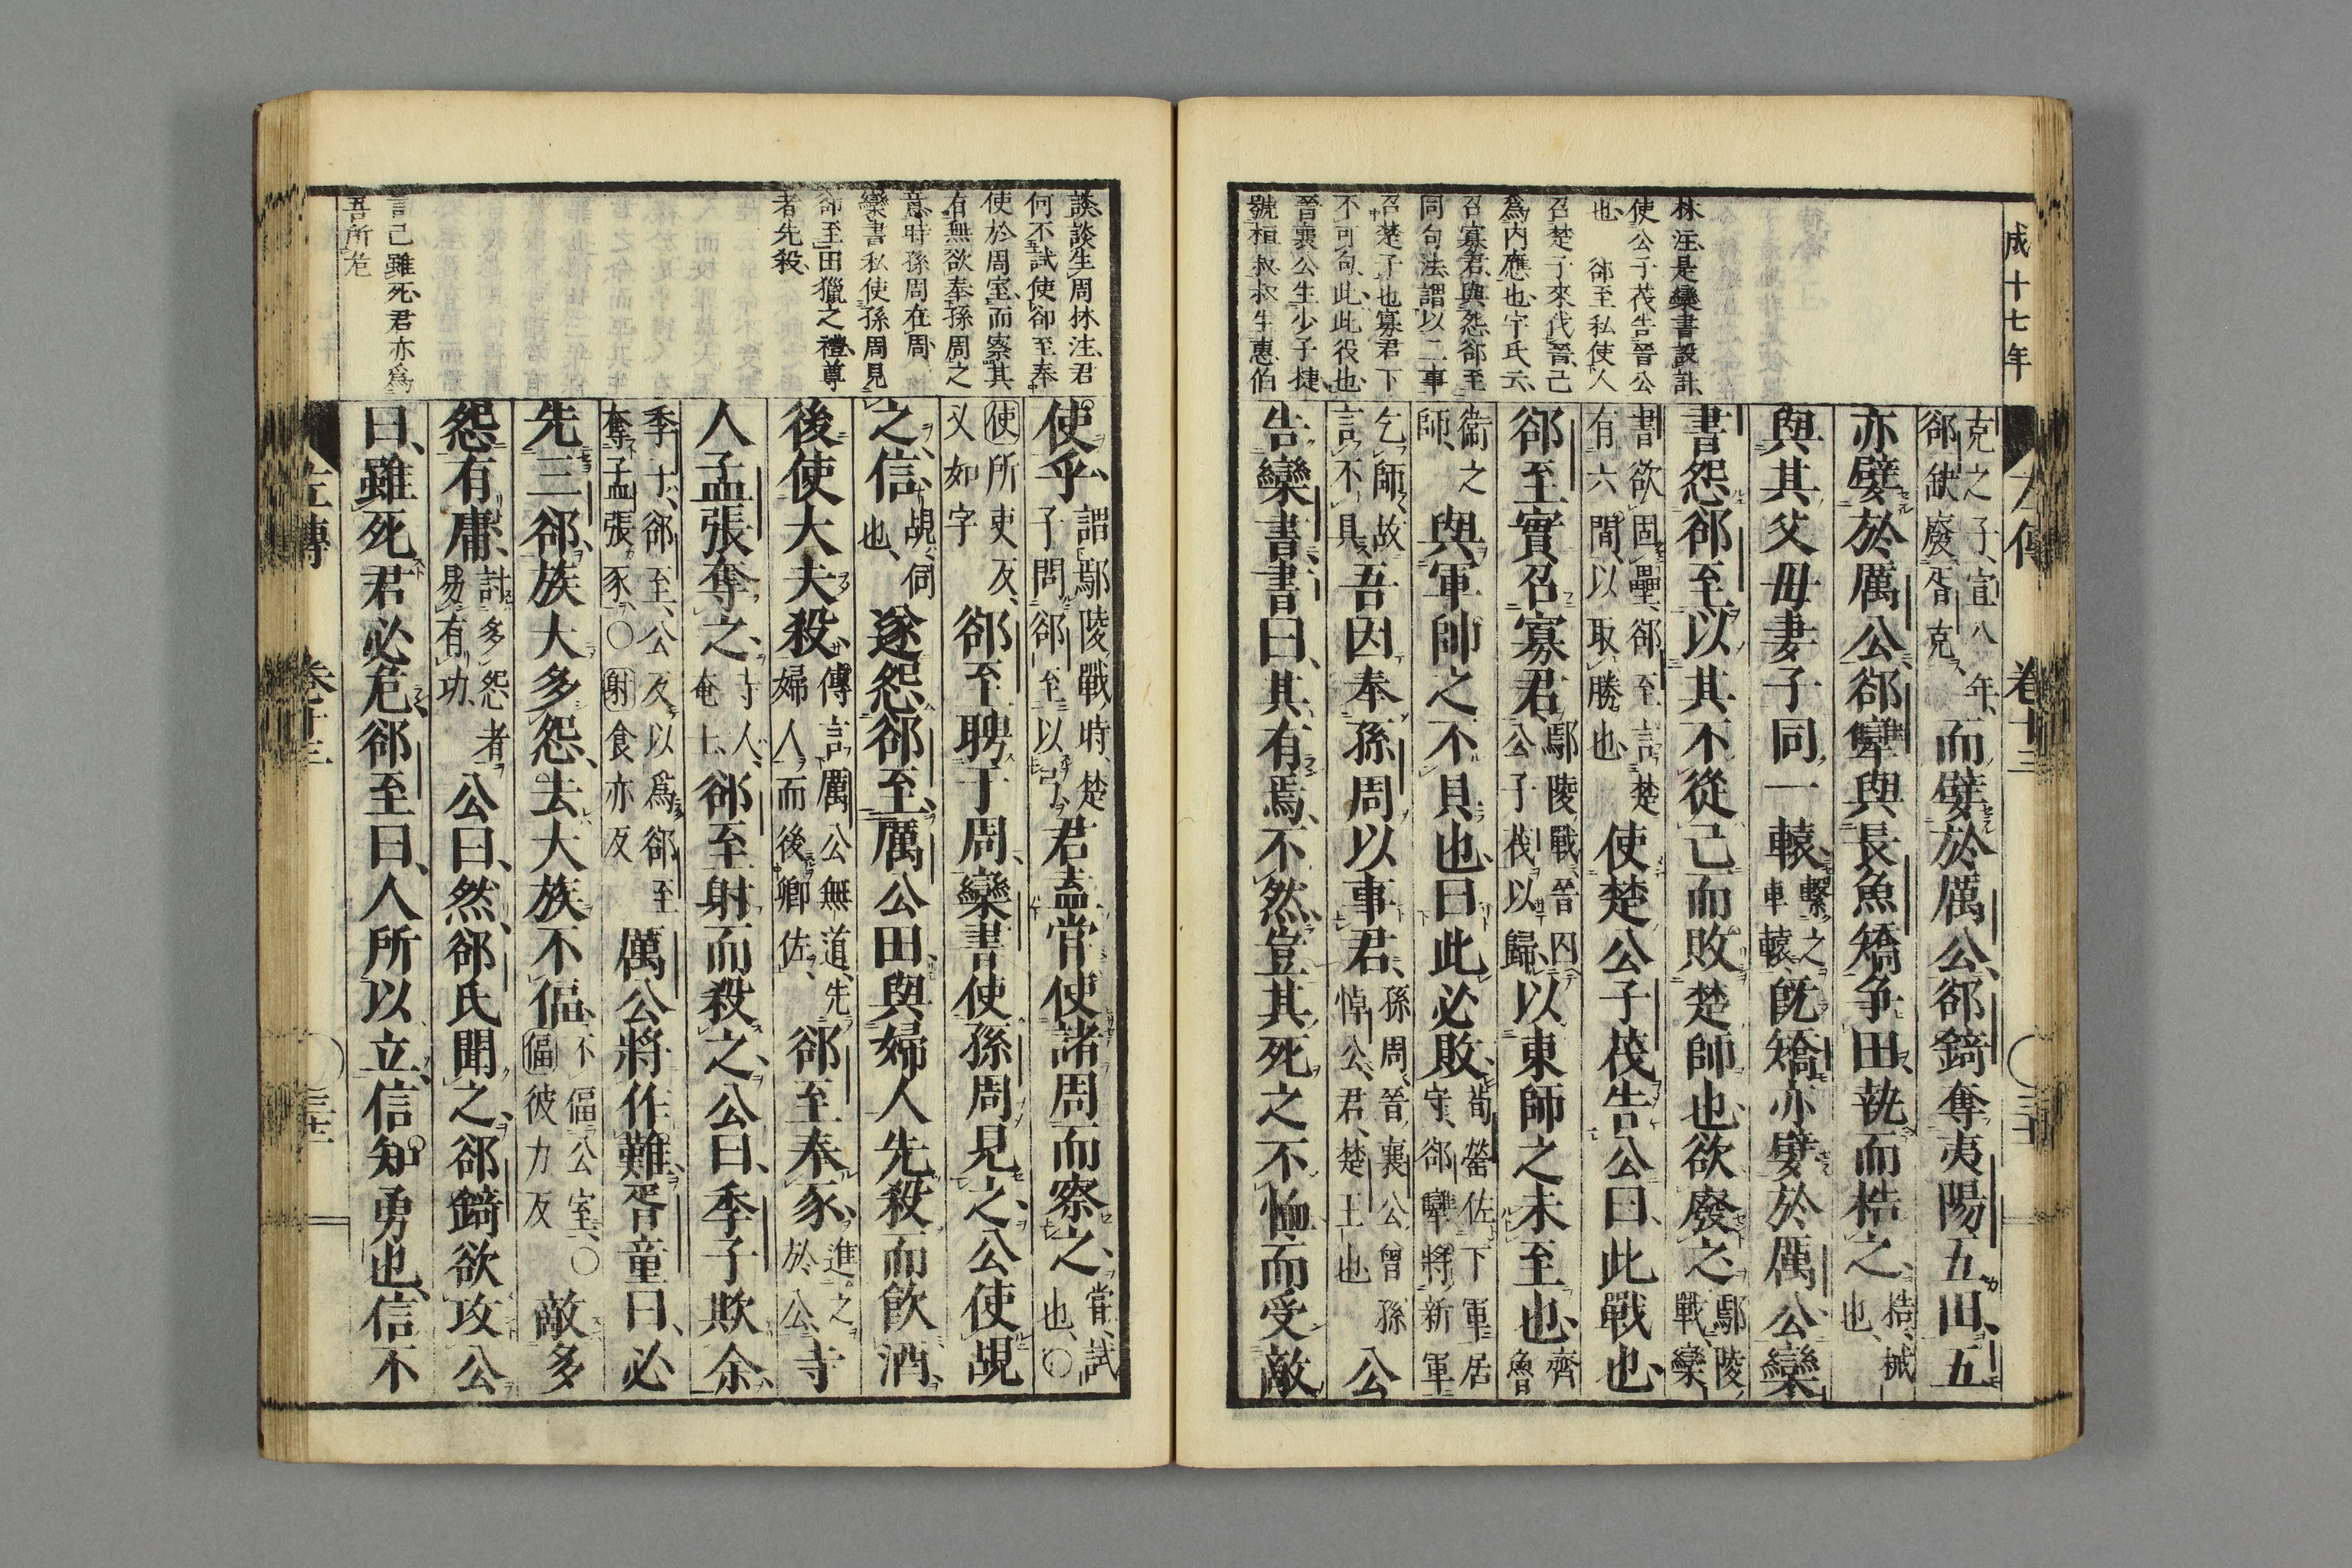 成十七年
左傳 卷十三 三十
林注是欒書設計
使公子茷告晉公
也 郤至私使人
召楚子來伐晉己
爲内應也宇氏云
召寡君與怨郤至
同句法謂以二事
召楚子也寡君下
不可句此此役也
晉襄公生少子捷
號桓叔叔生惠伯
克之子宣八年郤缺廢胥克而嬖於厲公郤錡奪夷陽五田五
亦嬖於厲公郤犨與長魚矯爭田執而梏之梏械也
與其父母妻子同一轅繫之車轅既矯亦嬖於厲公欒
書怨郤至以其不從己而敗楚師也欲廢之鄢陵戰欒
書欲固壘郤至言楚有六間以取勝也使楚公子茷告公曰此戰也
郤至實召寡君鄢陵戰晉囚公子茷以歸以東師之未至也齊魯
衞之師與軍帥之不具也曰此必敗荀罃佐下軍居守郤犨將新軍
乞師故言不具吾因奉孫周以事君孫周晉襄公曾孫悼公君楚王也公
告欒書書曰其有焉不然豈其死之不恤而受敵
談談生周林注君
何不試使郤至奉
使於周室而察其
有無欲奉孫周之
意時孫周在周
欒書私使孫周見
郤至田獵之禮尊
者先殺
言己雖死君亦爲
吾所危
使乎謂鄢陵戰時楚子問郤至以弓君盍嘗使諸周而察之嘗試也〇
使所吏反又如字郤至聘于周欒書使孫周見之公使覘
之信覘伺也遂怨郤至厲公田與婦人先殺而飮酒
後使大夫殺傳言厲公無道先婦人而後卿佐郤至奉豕進之於公寺
人孟張奪之寺人奄士郤至射而殺之公曰季子欺余
季子郤至公反以爲郤至奪孟張豕〇射食亦反厲公將作難胥童曰必
先三郤族大多怨去大族不偪不偪公室〇偪彼力反敵多
怨有庸討多怨者易有功公曰然郤氏聞之郤錡欲攻公
曰雖死君必危郤至曰人所以立信知勇也信不
左傳 卷十三